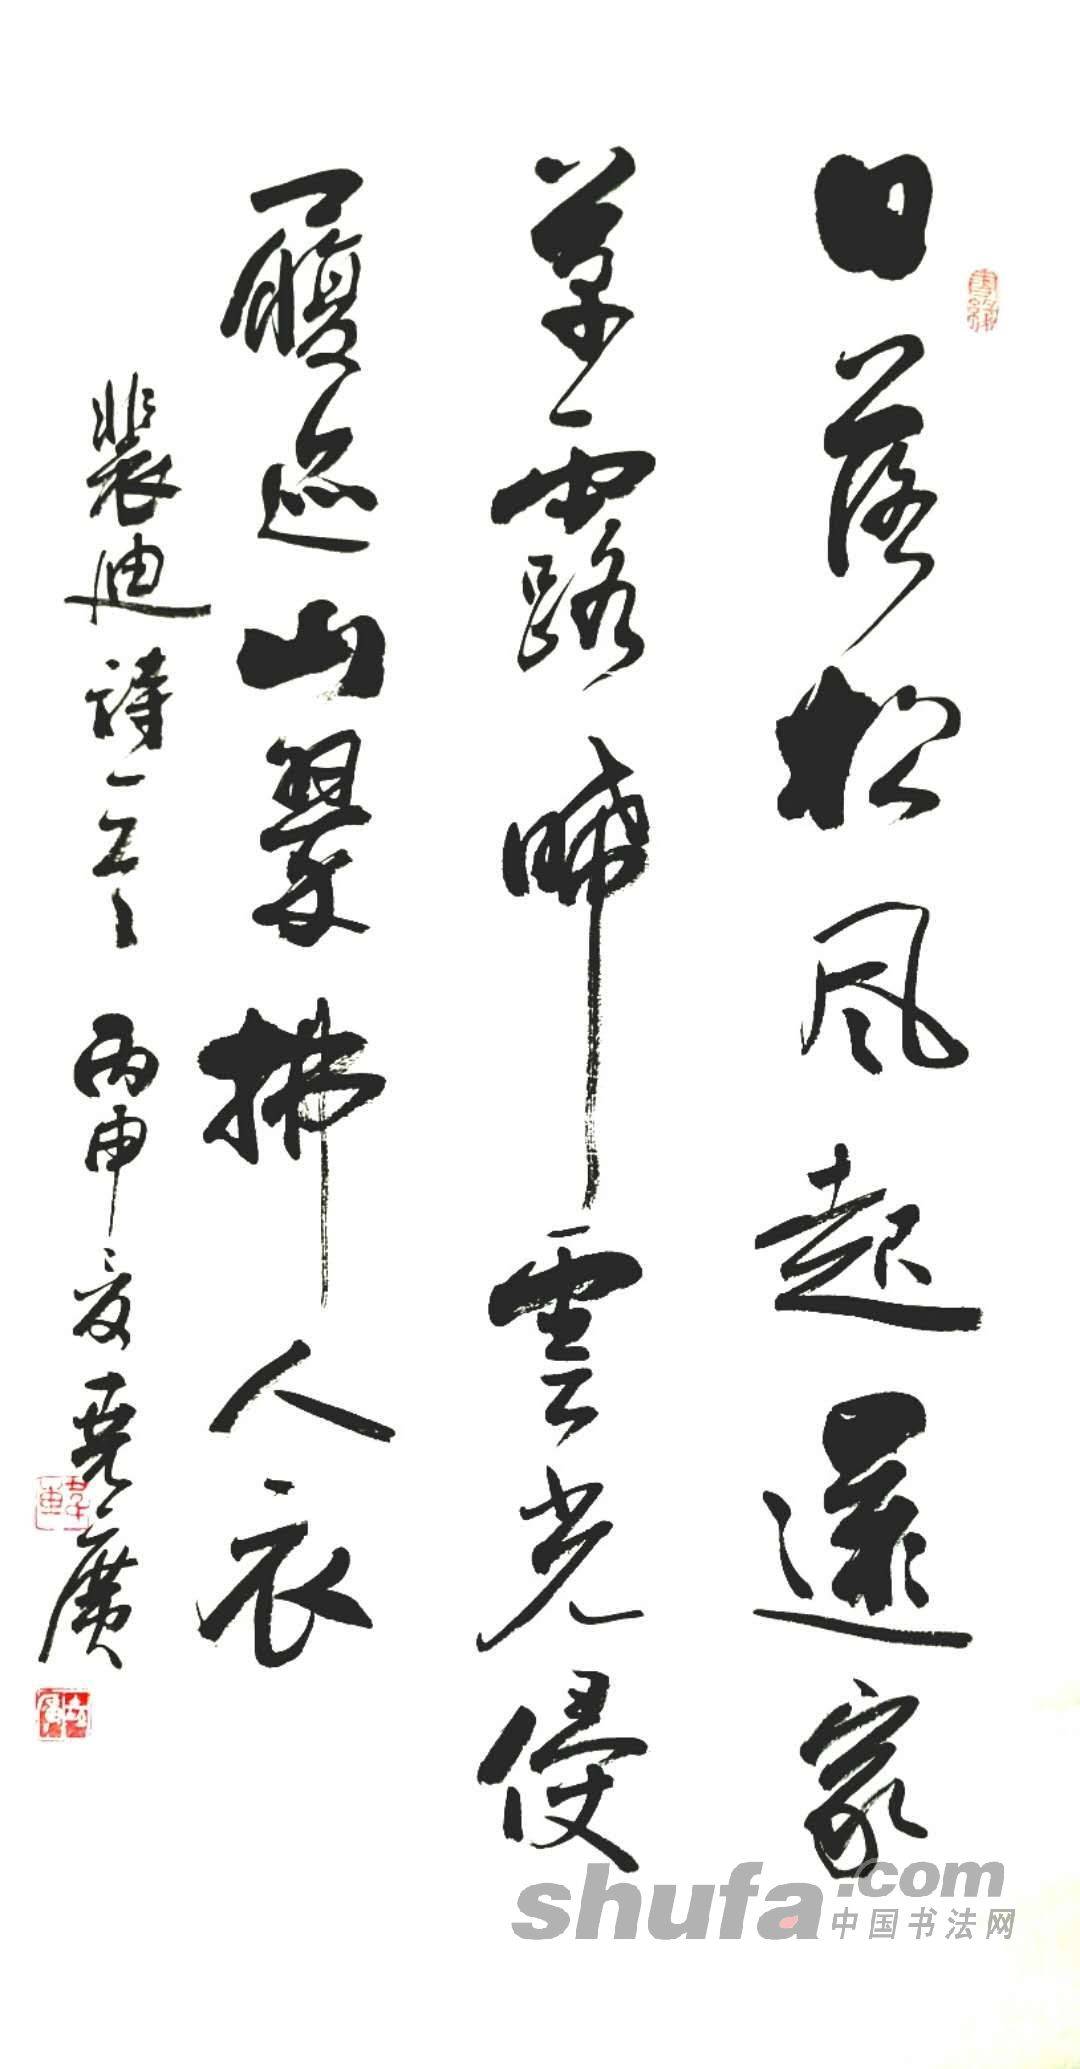 日落松風起還家
草露晞雲光侵
履迹山翠拂人衣
裴迪詩一首 丙申夏克廣
shufa.com
中国书法网